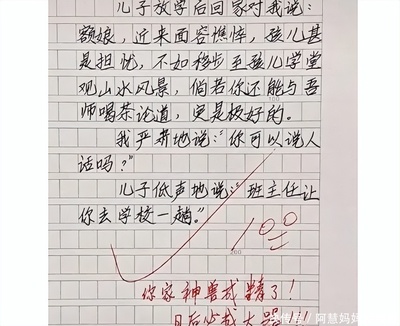 儿子放学后回家对我说：
额娘，近来面容憔悴，孩儿甚
是担忧，不如移步至孩儿学堂
观山水风景，倘若你还能与吾
师喝茶论道，更是极好的。
我严肃地说：“你可以说人
话吗？”
儿子低声地说：“班主任让
你去学校一趟。”
100
200
你家神兽成精了！
日后必成大器！！
阿慧妈妈